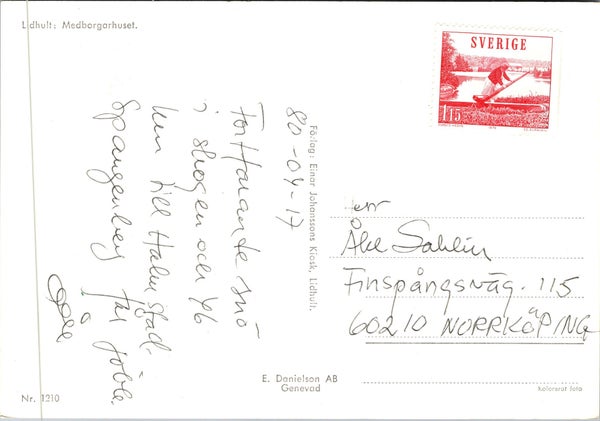 Lidhult: Medborgarhuset.
SVERIGE
115
80-04-17
Fortfarande snö
i skogen och
till Halmstad.
Spangenberg får jobba.
Förlag: Einar Johanssons Kiosk, Lidhult.
Herr
Åke Sahlin
Finspångsväg. 115
60210 NORRKÖPING
E. Danielson AB
Genevad
Nr. 1210
kolorerat foto